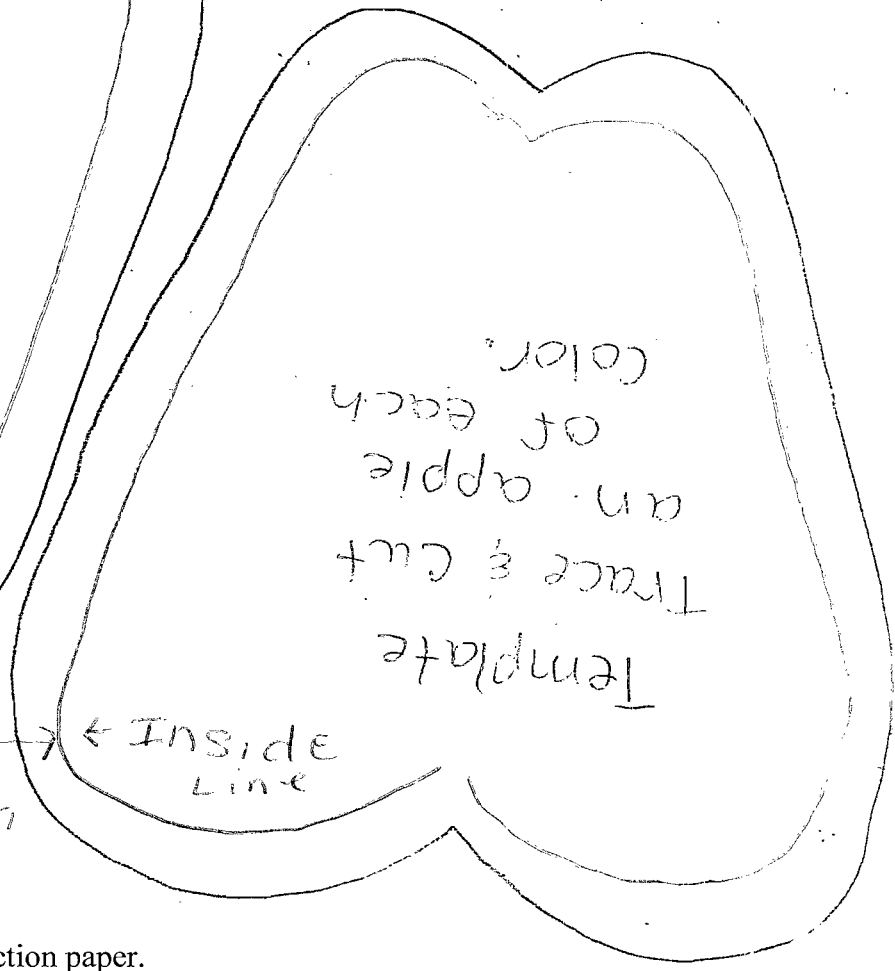 Template
Trace & Cut
an apple
of each
Color.
← Inside
Line
ction paper.